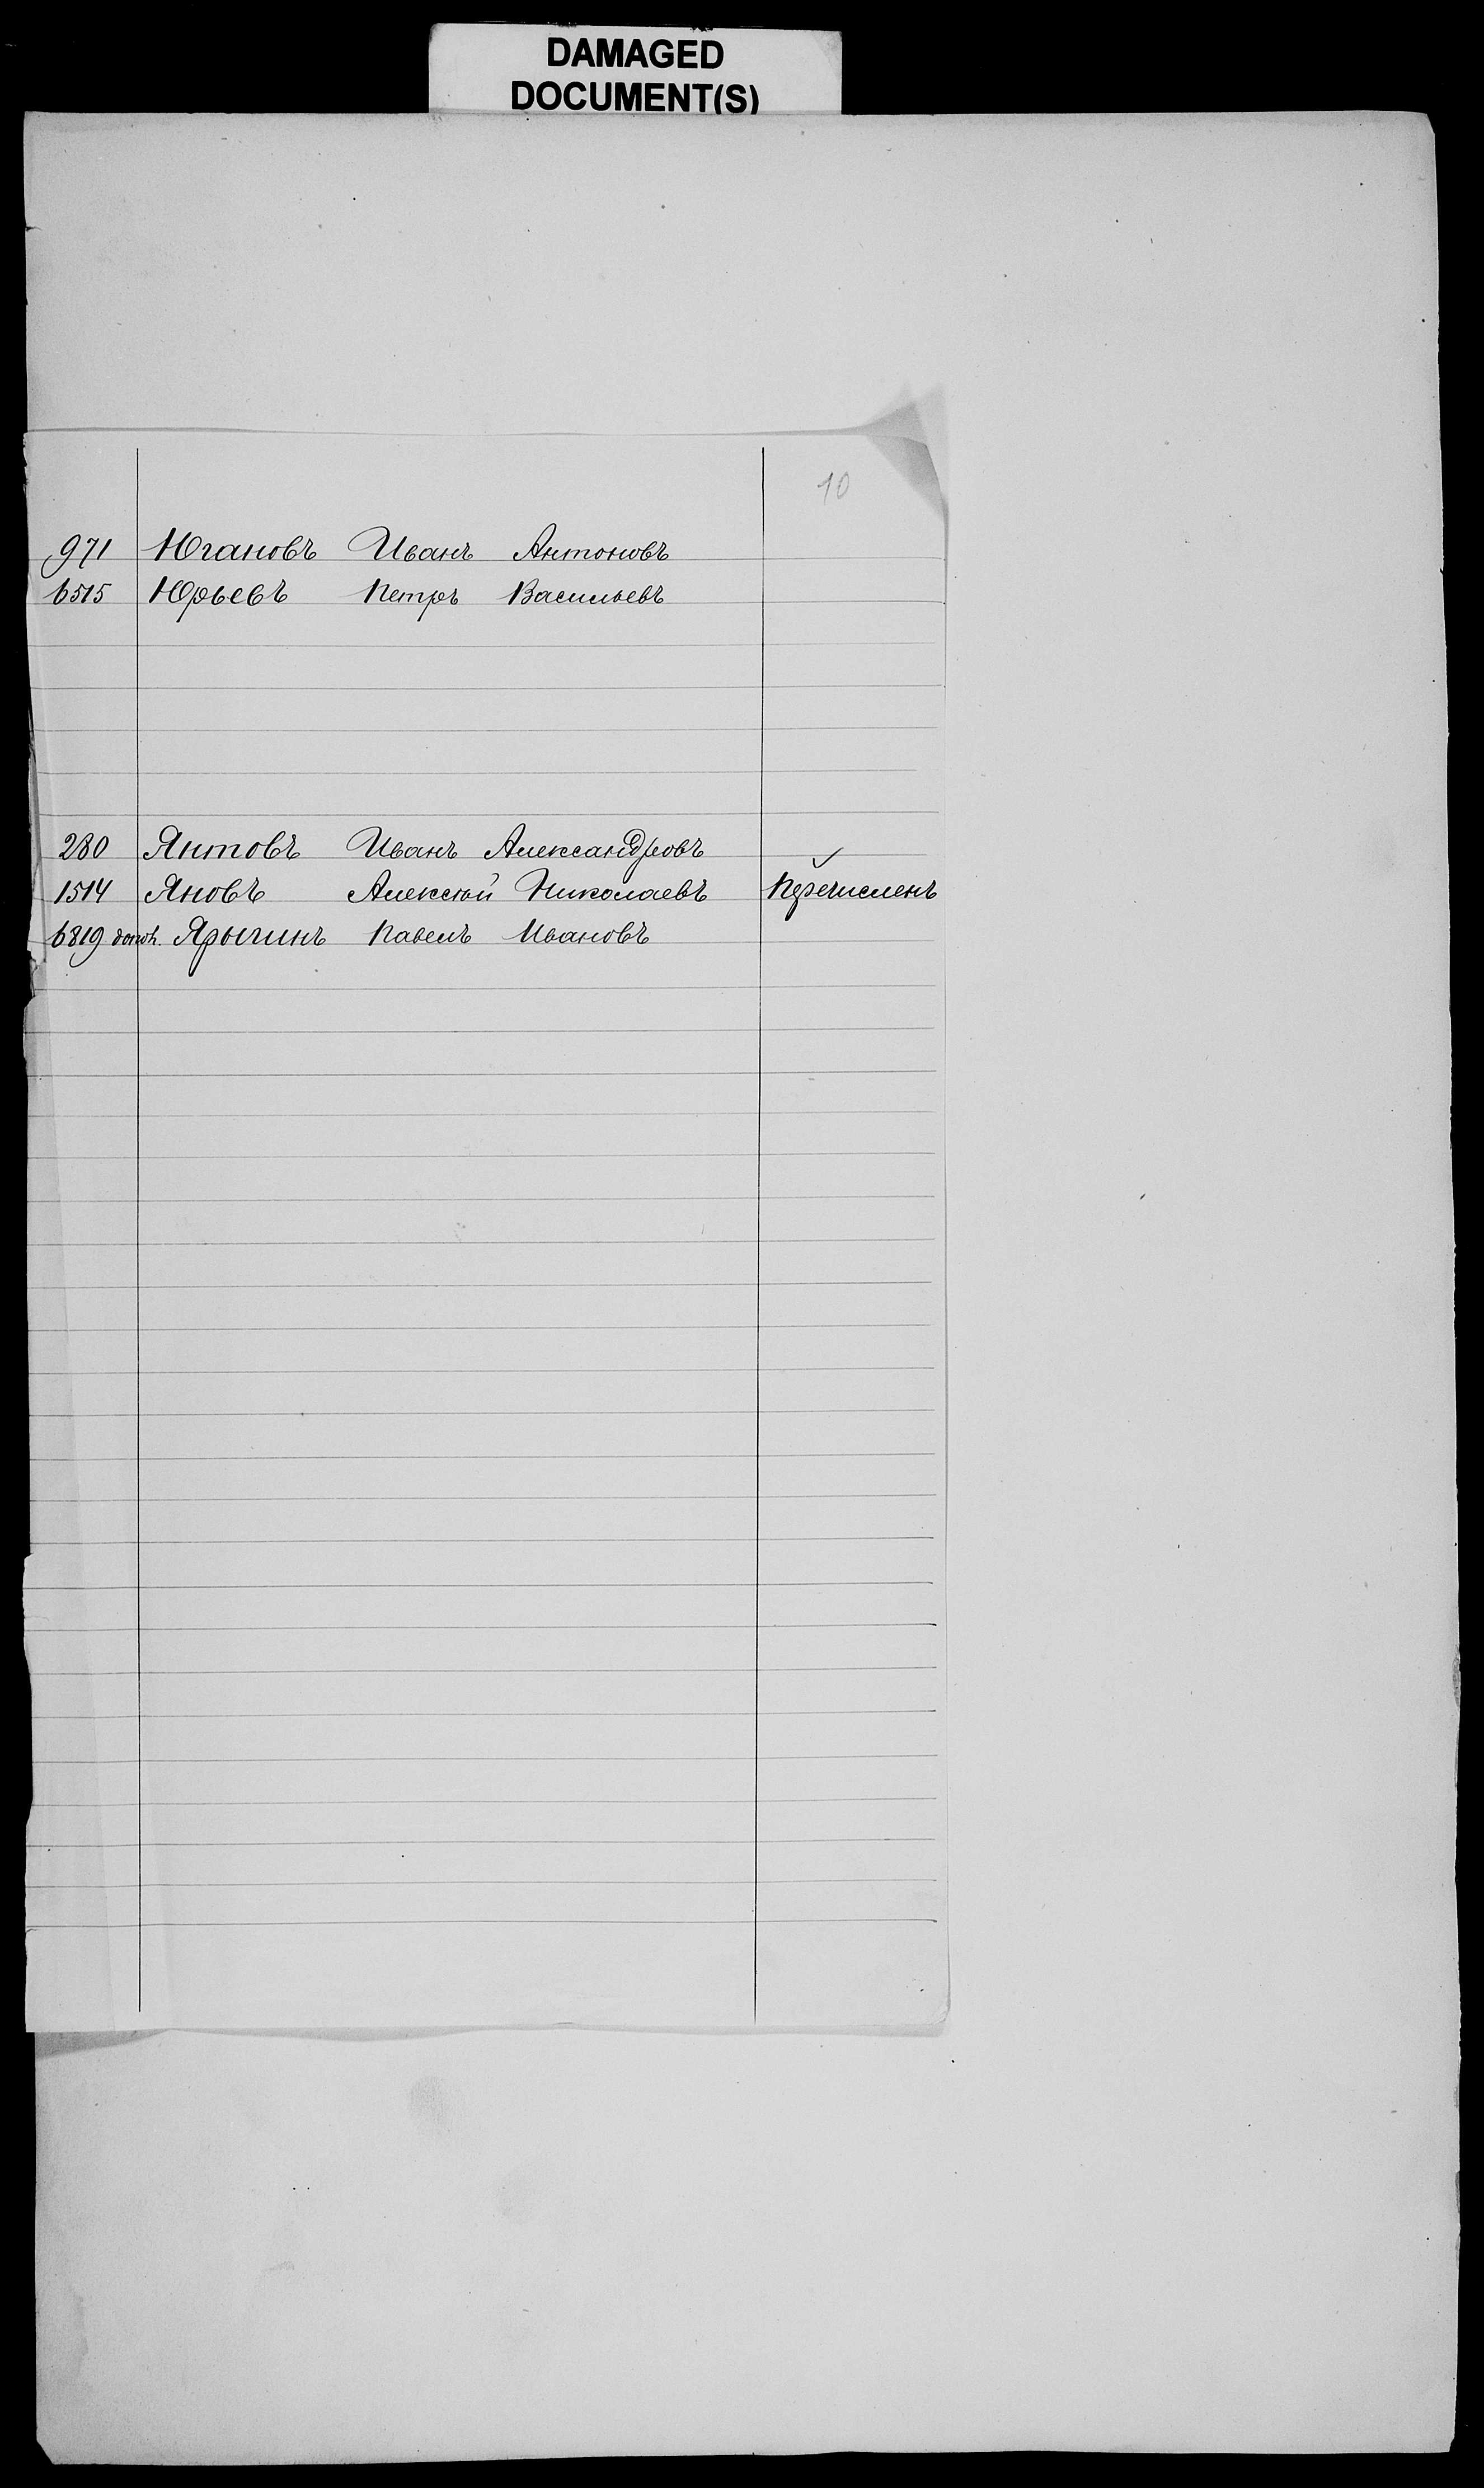 DAMAGED
DOCUMENT(S)
10
971 Югановъ Иванъ Антоновъ
6515 Юрьевъ Петръ Васильевъ
280 Янтовъ Иванъ Александровъ
1514 Яновъ Алексѣй Николаевъ Перечисленъ
6819 Ярыгинъ Павелъ Ивановъ